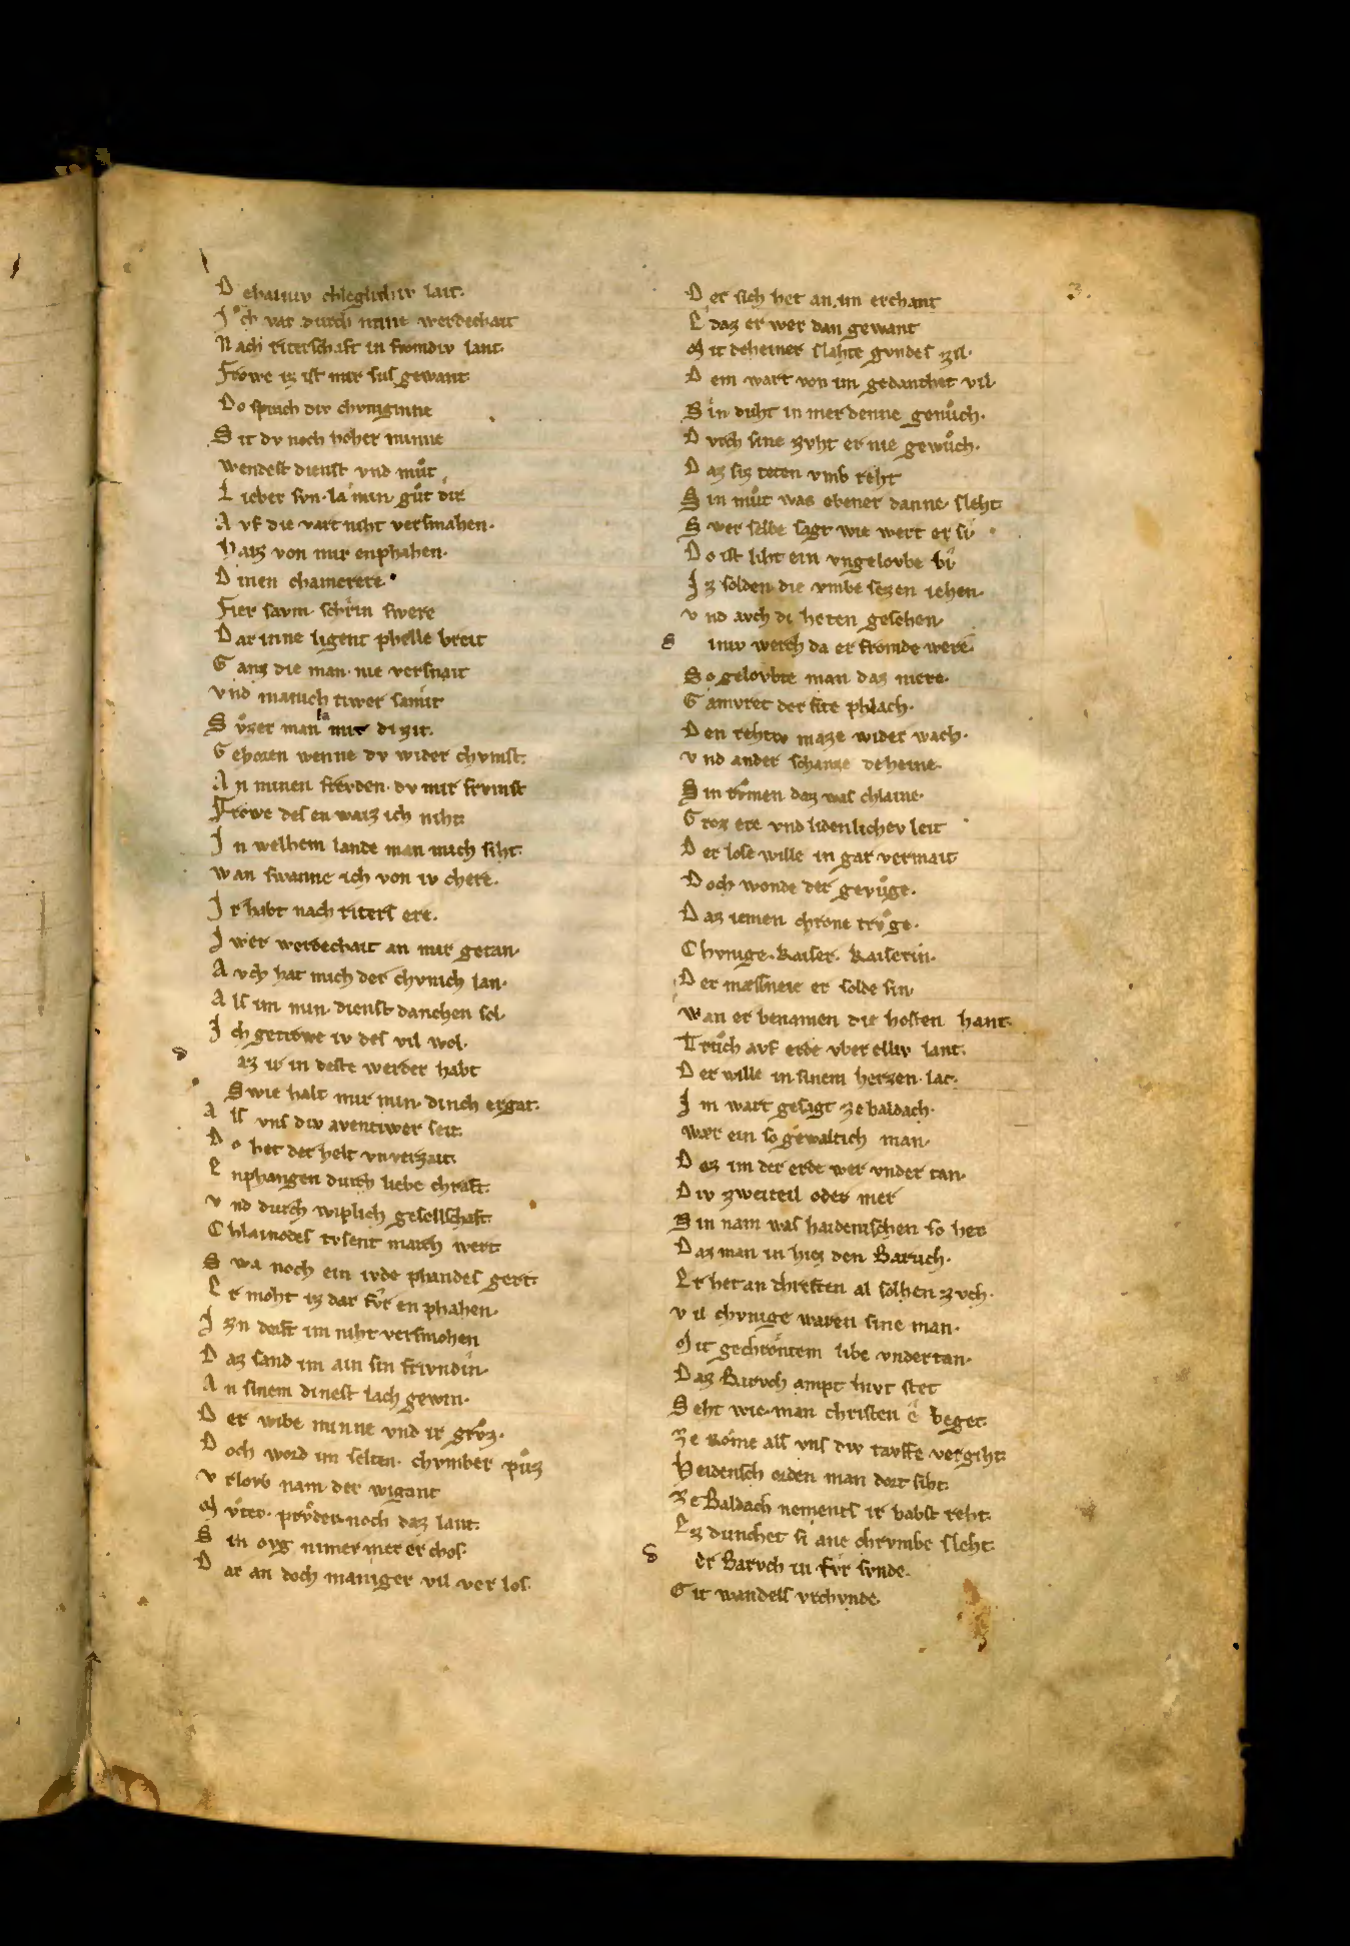 D ehainiv chleglicheiv lait.
J ͦch var durch mine werdechait
N ach riterschaft in fromdiv lant.
Frowe iz ist mir sus gewant.
D o sprach div chvniginne
S it dv noch hoher minne
wendest dienst vnd mͦut
L ieber svn. la min gͦut dir
A vf die vart niht versmahen.
haiz von mir enphahen.
D inen chamerere.
Fier savm schrin swere
D ar inne ligent phelle breit
G anz die man. nie versnait
v nd manich tiwer samit
S ͮvzer man la mir di zit.
G ehoren wenne dv wider chvmst.
A n minen frevden. dv mir frvmst
Frowe des en waiz ich niht.
J n welhem lande man mich siht.
wan swanne ich von iv chere.
J r habt nach riters ere.
J wer werdechait an mir getan.
A vch hat mich der chvnich lan.
A ls im min. dienst danchen sol.
J ch getrowe iv des vil wol.
D az ir in deste werder habt
S wie halt mir min. dinch ergat.
A ls vns div aventiwer seit.
D o het der helt vnverzait.
E nphangen durch liebe chraft.
v nd durch wiplich geselschaft.
C hlainodes tvsent march wert.
S wa noch ein ivde phandes gert.
E r moht iz dar fvr en phahen.
J zn dorft im niht versmohen
D az sand im ain sin frivndin.
A n sinem dinest lach gewin.
D er wibe minne vnd ir grͮvz.
D och word im selten. chvmber pͮuz
v rlovb nam. der wigant
M vͤter. prvͦder. noch daz lant.
S in ovg nimer mer er chos.
D ar an doch maniger vil ver los.
D er sich het an im erchant
E daz er wer dan gewant
M it deheiner slahte gvndes zil.
D em wart von im gedanchet vil.
S in duht in mer denne genͦuch.
D vrch sine zvht er nie gewͦuch.
D az siz teten vmb reht
S in mͦut was ebener danne. sleht.
S wer selbe sagt wie wert er si.
D o ist liht ein vngelovbe bi
J z solden die vmbe sezen iehen.
v nd avch di heten gesehen.
S iniv werch da er fromde were.
S o gelovbte man daz mere.
G amvret der site phlach.
D en rehtiv maze wider wach.
v nd ander schanze deheine.
S in rvmen daz was chlaine.
G roz ere vnd lidenlichev leit
D er lose wille in gar vermait
D och wonde der gevͦuge.
D az iemen chrone trvͦge.
C hvnige. kaiser. kaiserin.
D er mæssneie er solde sin.
wan er benamen die hosten hant.
Trͦuch avf erde vber elliv lant.
D er wille in sinem herzen. lac.
J m wart gesagt ze baldach.
wær ein so gewaltich man.
D az im der erde wer vnder tan.
D iv zweiteil oder mer
S in nam was haidenischen so her
D az man in hiez den Baruch.
E r het an chreften al solhen zvch.
v il chvnige waren sine man.
M it gechrontem libe vndertan.
D az Barvch ampt hivt stet
S eht wie. man christen e beget.
Ze Rome als vns div tavffe vergiht.
heidensch orden man dort siht.
Ze Baldach nements ir babst reht.
E z dunchet si ane chrvmbe sleht.
D er Barvch in fvr svnde.
G it wandels vrchvnde.